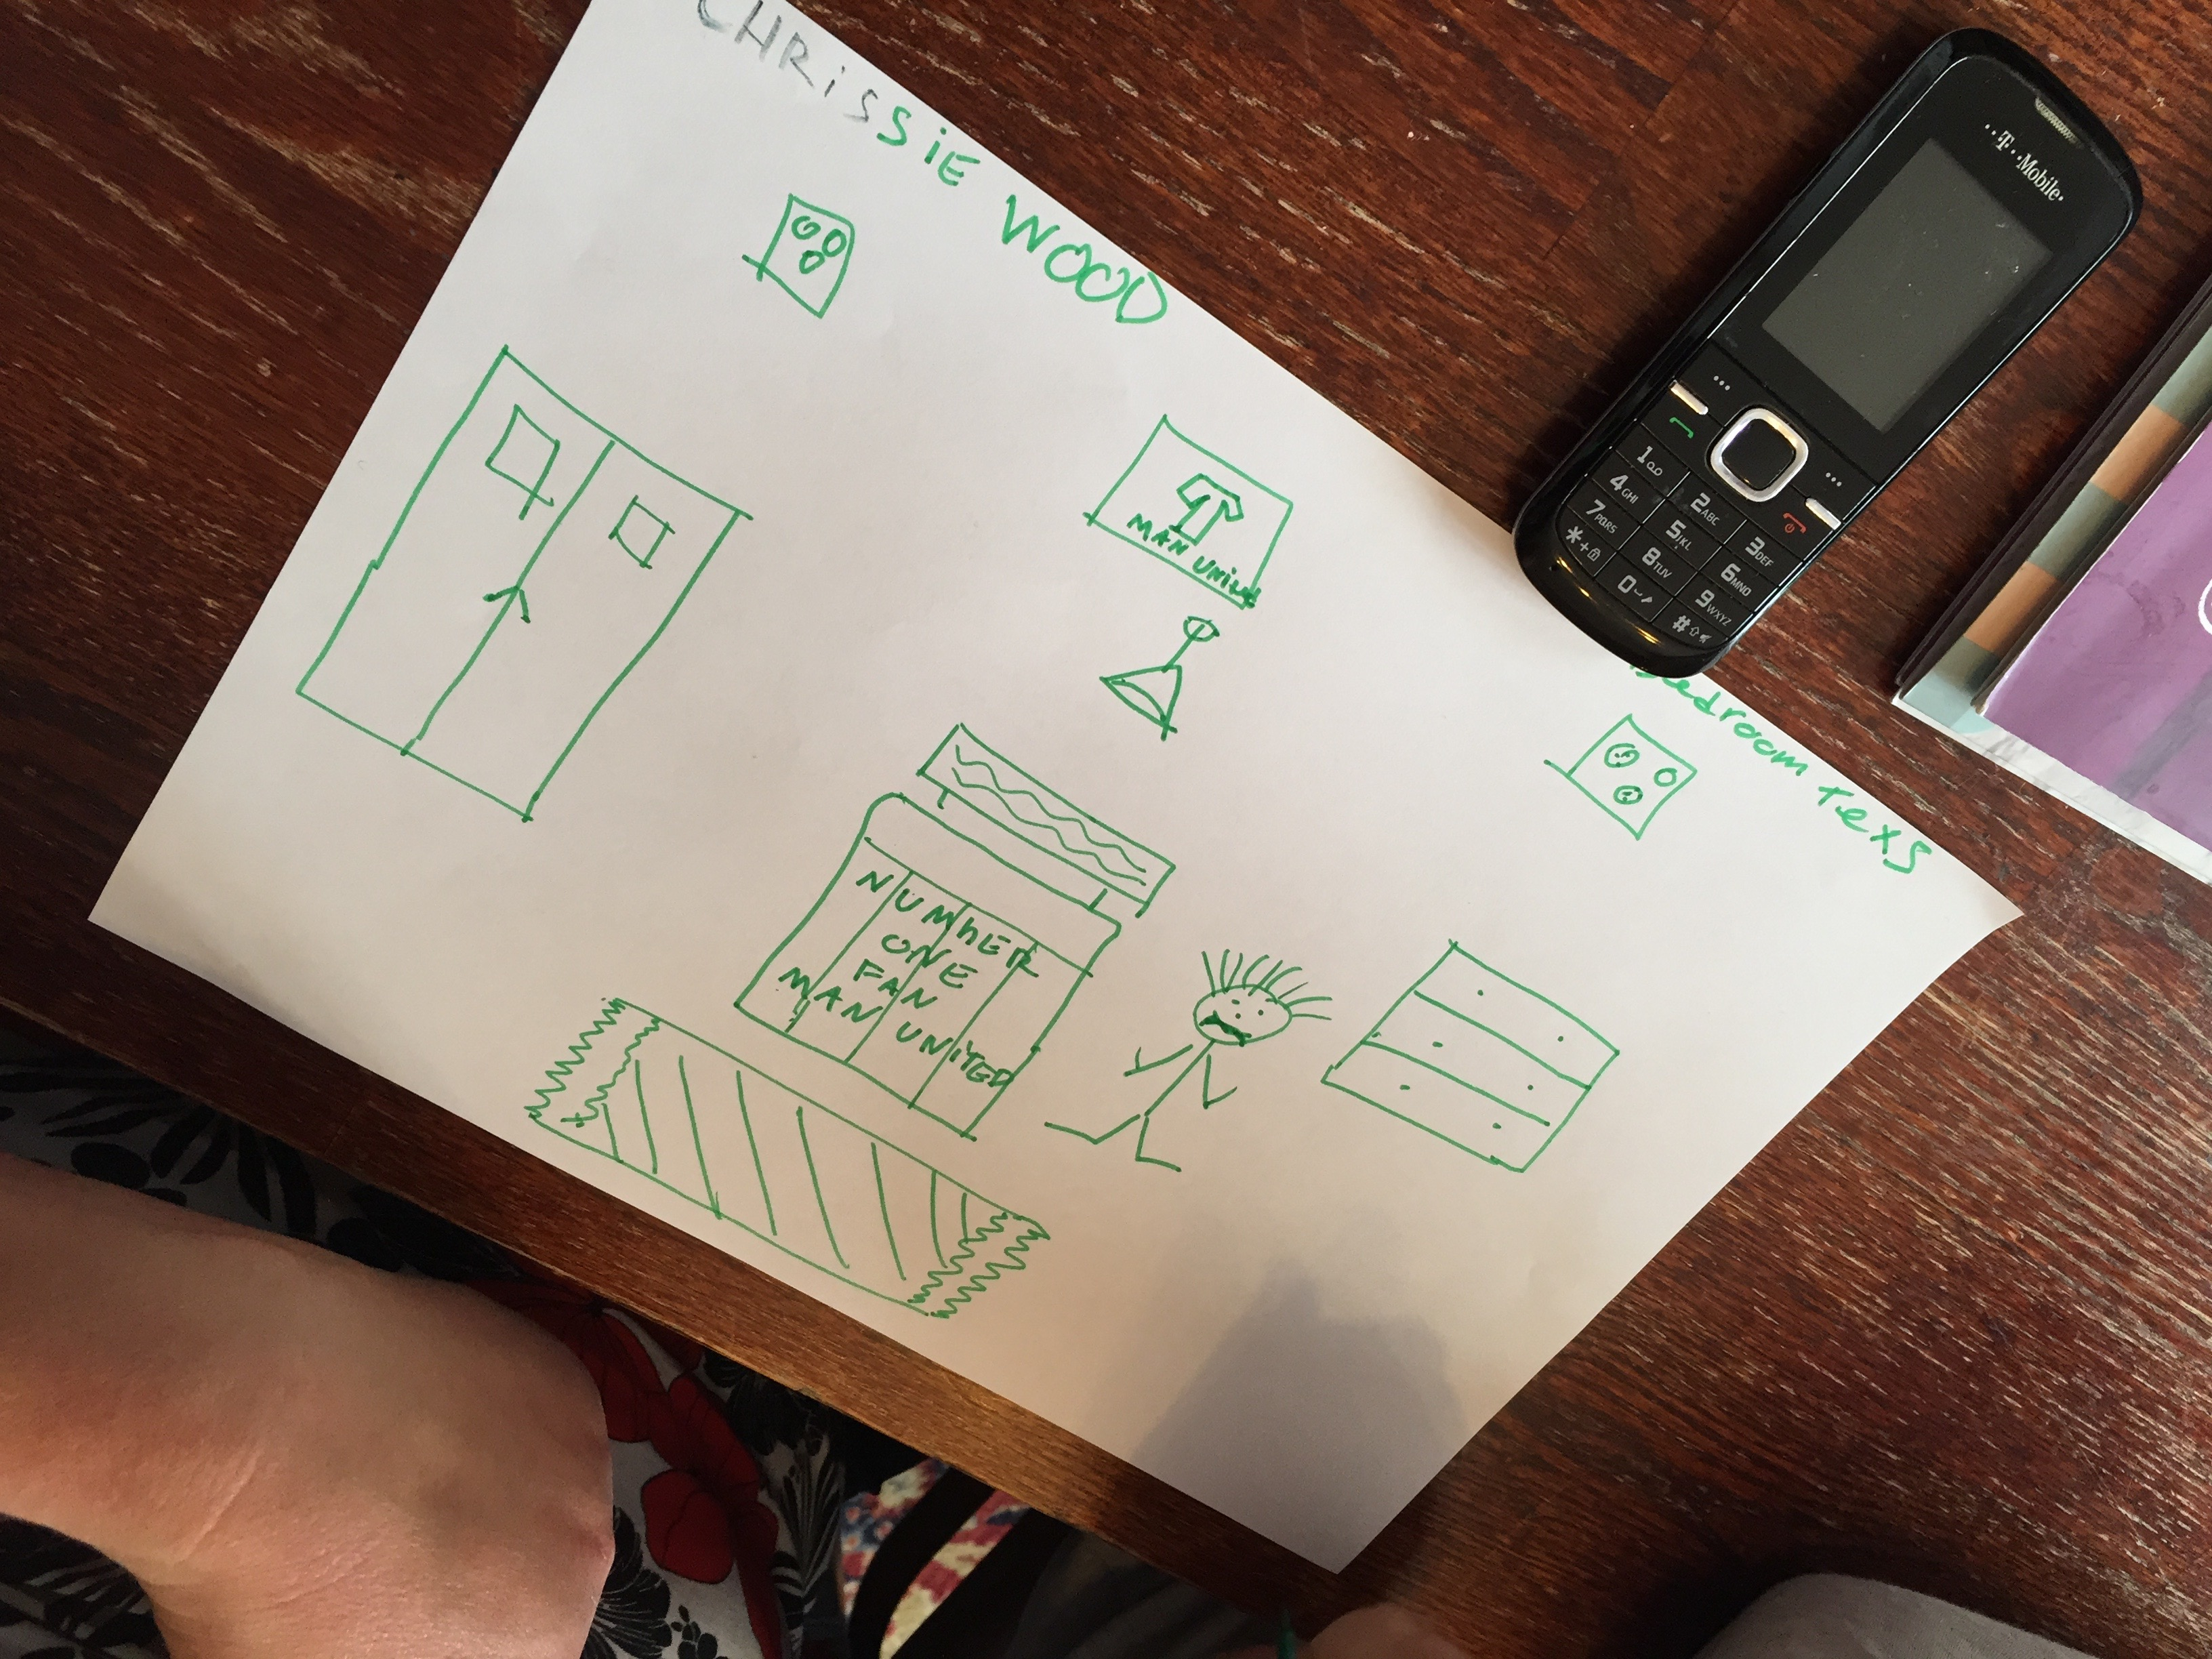 CHRiSSiE WOOD
bedroom texs
MAN UNiTED
NUMbER
ONE
FAN
MAN UNiTED
··T··Mobile·
1
2ABC
3DEF
4GHI
5JKL
6MNO
7PQRS
8TUV
9WXYZ
*+
0
#